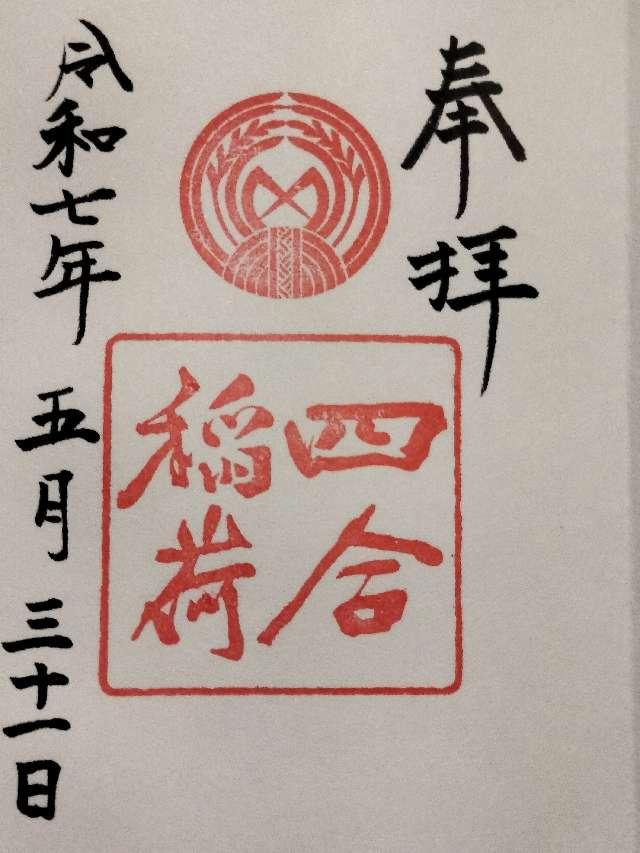 奉拝
四合
稲荷
令和七年 五月 三十一日